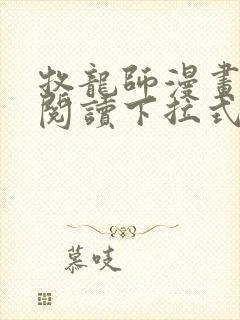 牧龍師漫畫
閱讀下拉式
慕吱